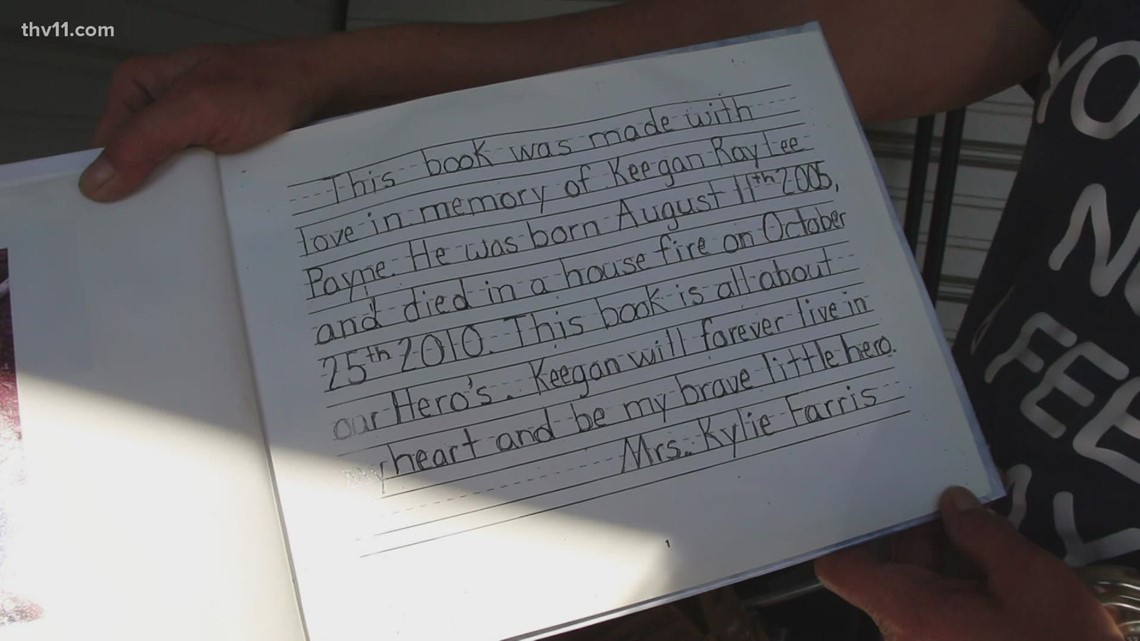 thv11.com
This book was made with
love in memory of Keegan Ray Lee
Payne. He was born August 11th 2005,
and died in a house fire on October
25th 2010. This book is all about
our Hero's. Keegan will forever live in
my heart and be my brave little hero.
Mrs. Kylie Farris
1
YO
FEE